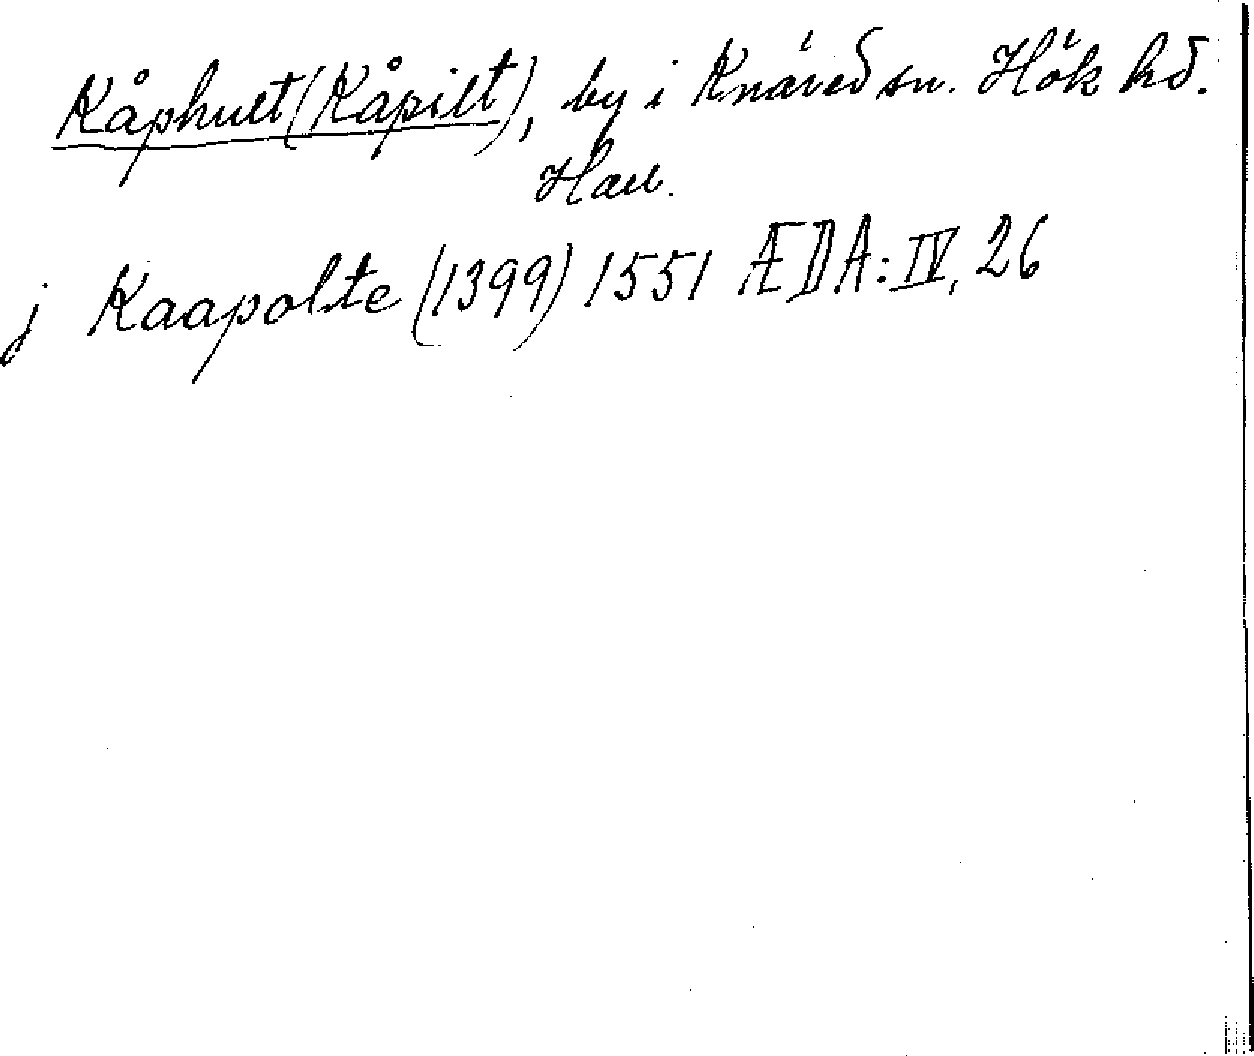 Kåphult (Kåpilt), by i Knäred sn. Hök hd.
Hall.
j Kaapolte (1399) 1551 ÆDA: IV, 26